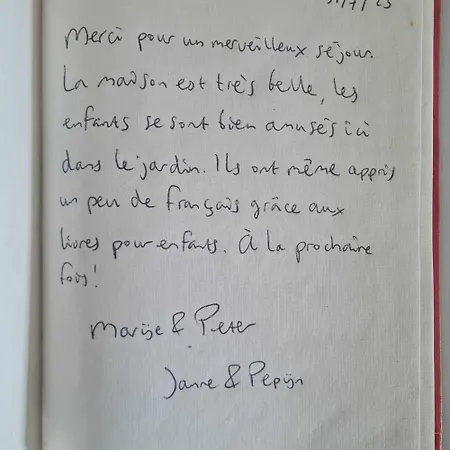 31/7/23
Merci pour un merveilleux séjour.
La maison est très belle, les
enfants se sont bien amusés ici
dans le jardin. Ils ont même appris
un peu de français grâce aux
livres pour enfants. À la prochaine
fois!
Marije & Peter
Janne & Pepijn